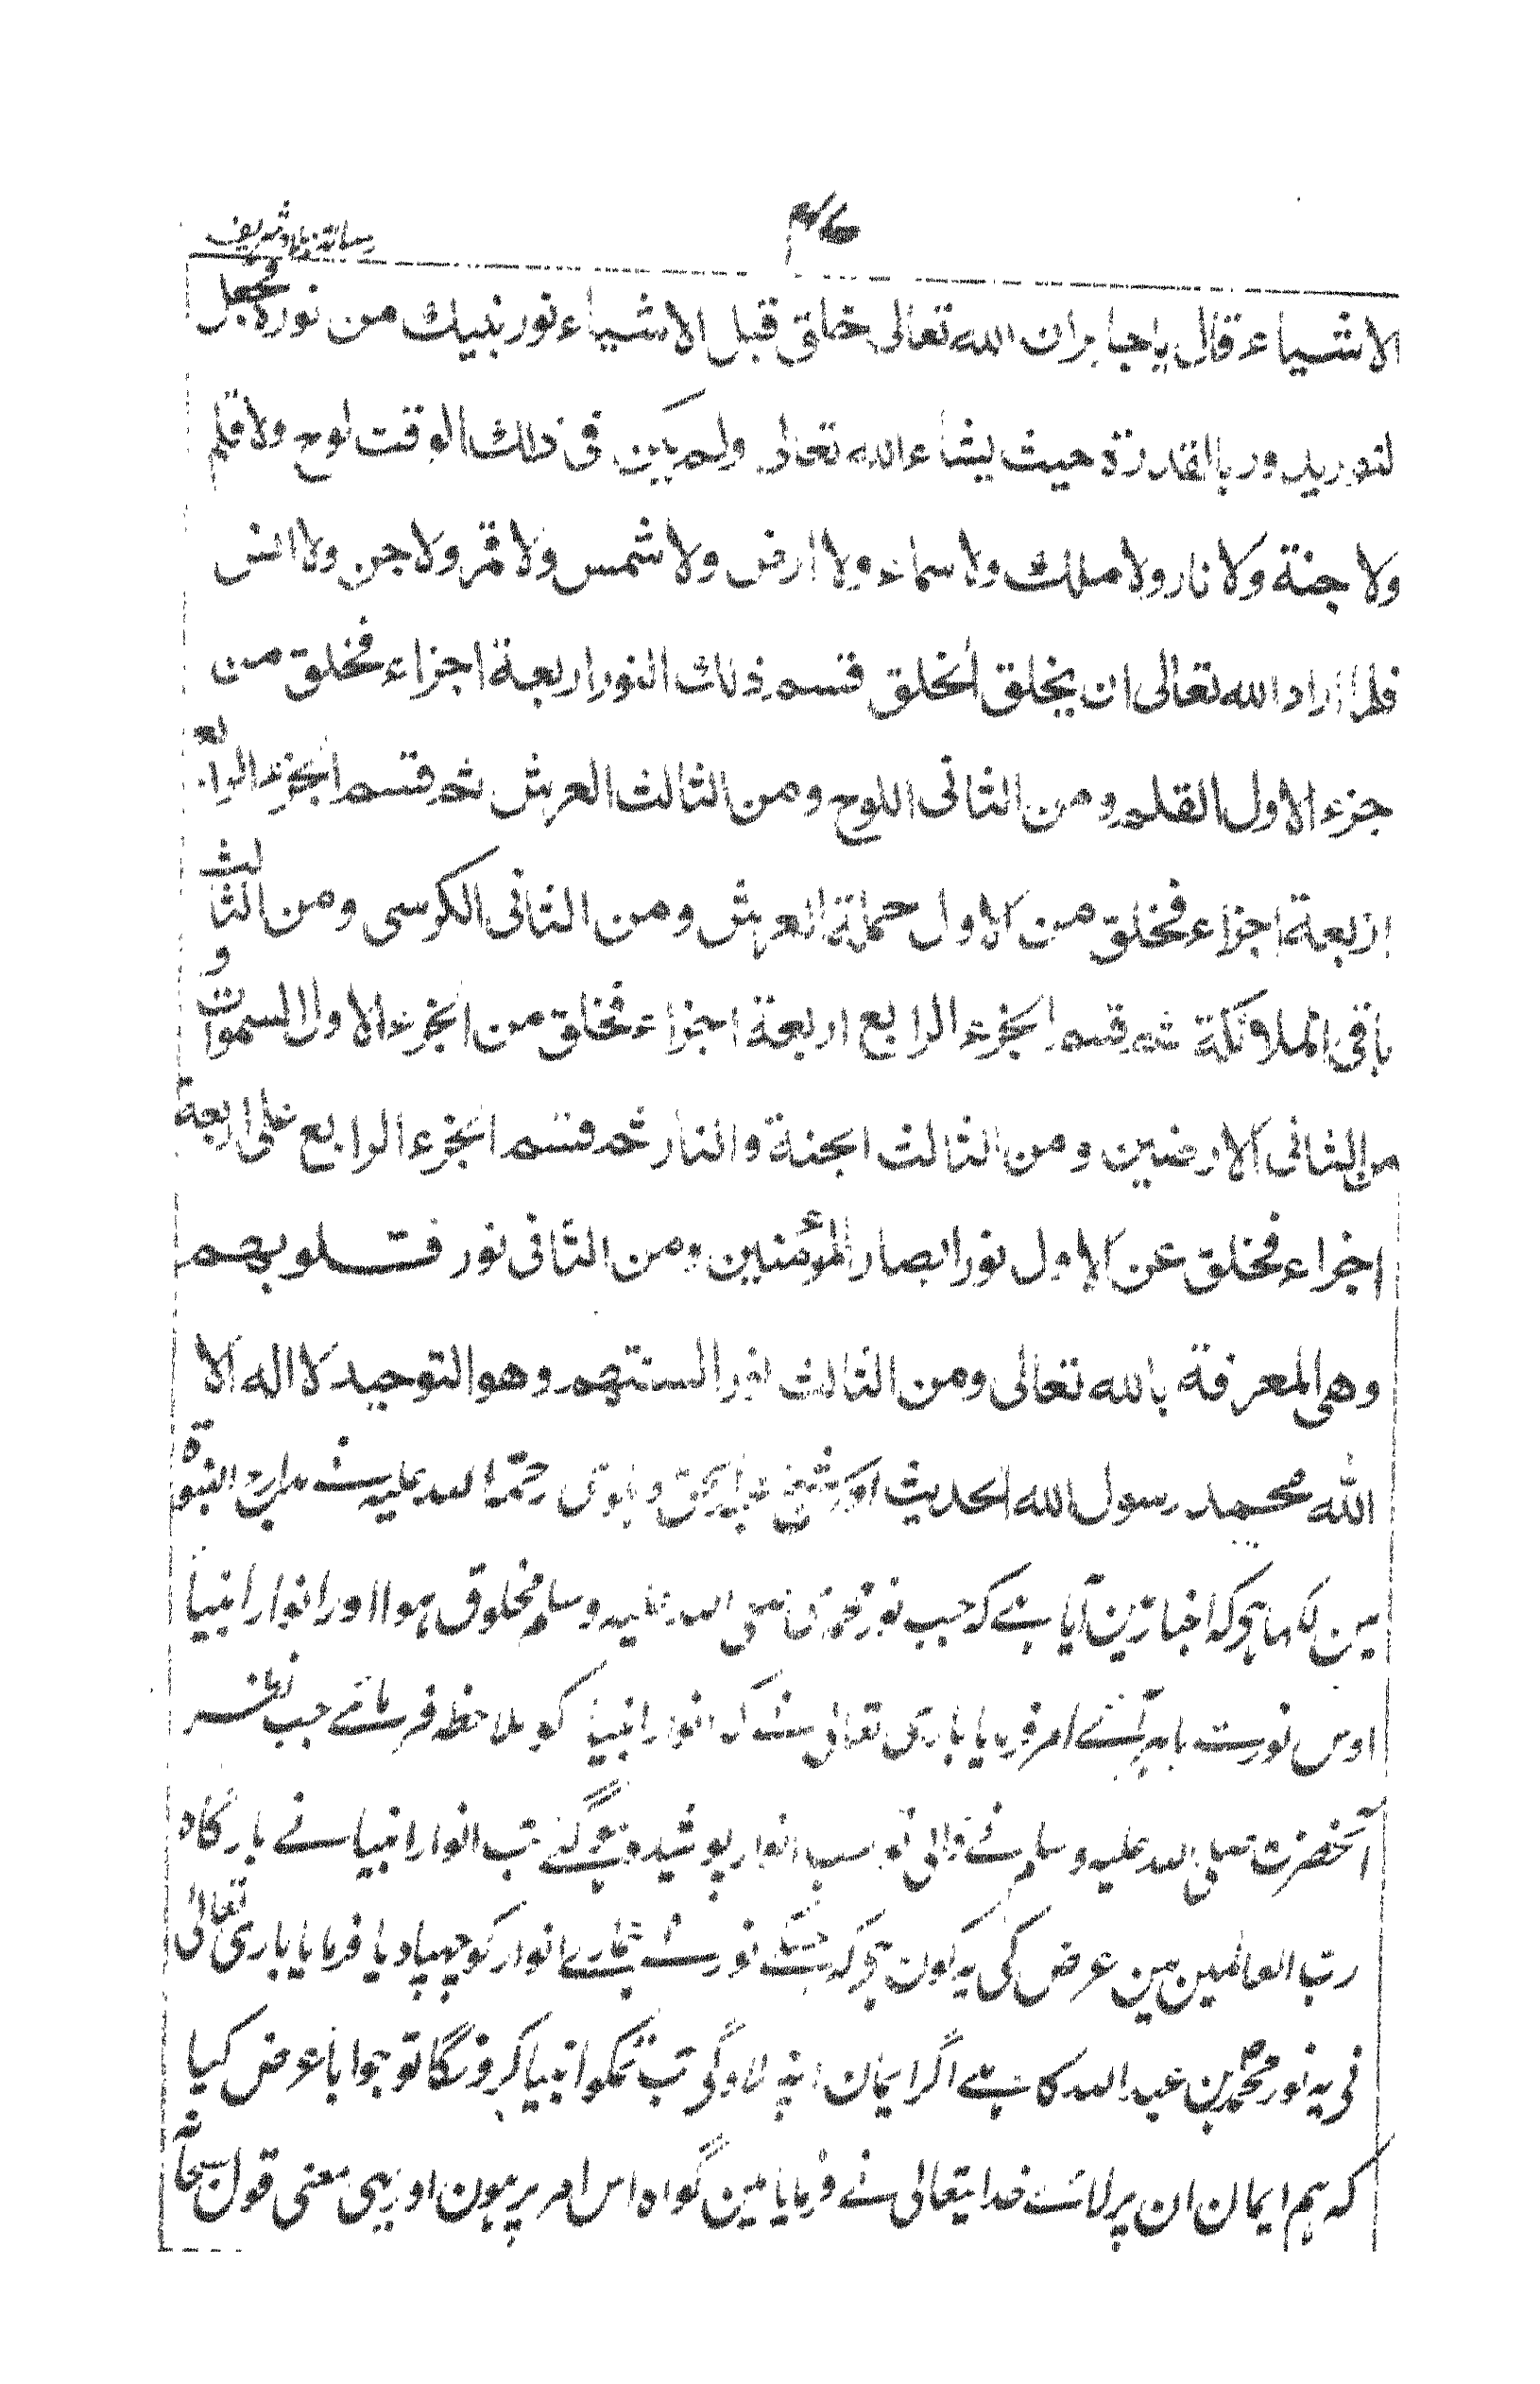 رسالہ میلاد شریف
الاشیاء قال یاجابر ان الله تعالی خلق قبل الاشیاء نور نبیك من نورہ فجعل
النور یدور بالقدرة حیث یشاء الله تعالی ولم یکن فی ذلك الوقت لوح ولا قلم
ولا جنة ولا نار ولا ملك ولا سماء ولا ارض ولا شمس ولا قمر ولا جن ولا انس
فلما اراد الله تعالی ان یخلق الخلق قسم ذلك النور اربعة اجزاء فخلق من
جزء الاول القلم ومن الثانی اللوح ومن الثالث العرش ثم قسم الجزء الرابع
اربعة اجزاء فخلق من الاول حملة العرش ومن الثانی الکرسی ومن الثالث
باقی الملائکة ثم قسم الجزء الرابع اربعة اجزاء فخلق من الجزء الاول السموات و
من الثانی الارضین ومن الثالث الجنة والنار ثم قسم الجزء الرابع علی اربعة
اجزاء فخلق عن الاول نور ابصار المؤمنین ومن الثانی نور قلوبهم
وهی المعرفة بالله تعالی ومن الثالث نور السنتهم وهو التوحید لا اله الا
الله محمد رسول الله الحدیث اور شیخ عبد الحق دہلوی رحمة الله علیہ نے مدارج النبوة
مین لکہا ہی کہ اخبار مین آیا ہے کہ جب نور محمدی صلی الله علیہ وسلم مخلوق ہوا اور انوار انبیا
اوس نور سے باہر آئے امر فرمایا باری تعالی نے کہ انوار انبیا کو ملاحظہ فرمائے جب نظر
آنحضرت صلی الله علیہ وسلم نے ڈالی تو سب انوار پوشیدہ ہوگئے تب انوار انبیا نے بارگاہ
رب العالمین مین عرض کی یہ کون ہی کہ جسکے نور نے ہمارے انوار کو چہپا دیا فرمایا باری تعالی
نی یہ نور محمد بن عبد الله کا ہے اگر ایمان لاوگی تب تمکو انبیا کرونگا تو جوابا عرض کیا
کہ ہم ایمان ان پر لائے خدایتعالی نے فرمایا مین گواہ اس امر پر ہون اور یہی معنی قول سبحانہ